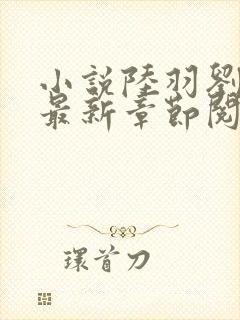 小說陸羽劉
最新章節閱
環首刀